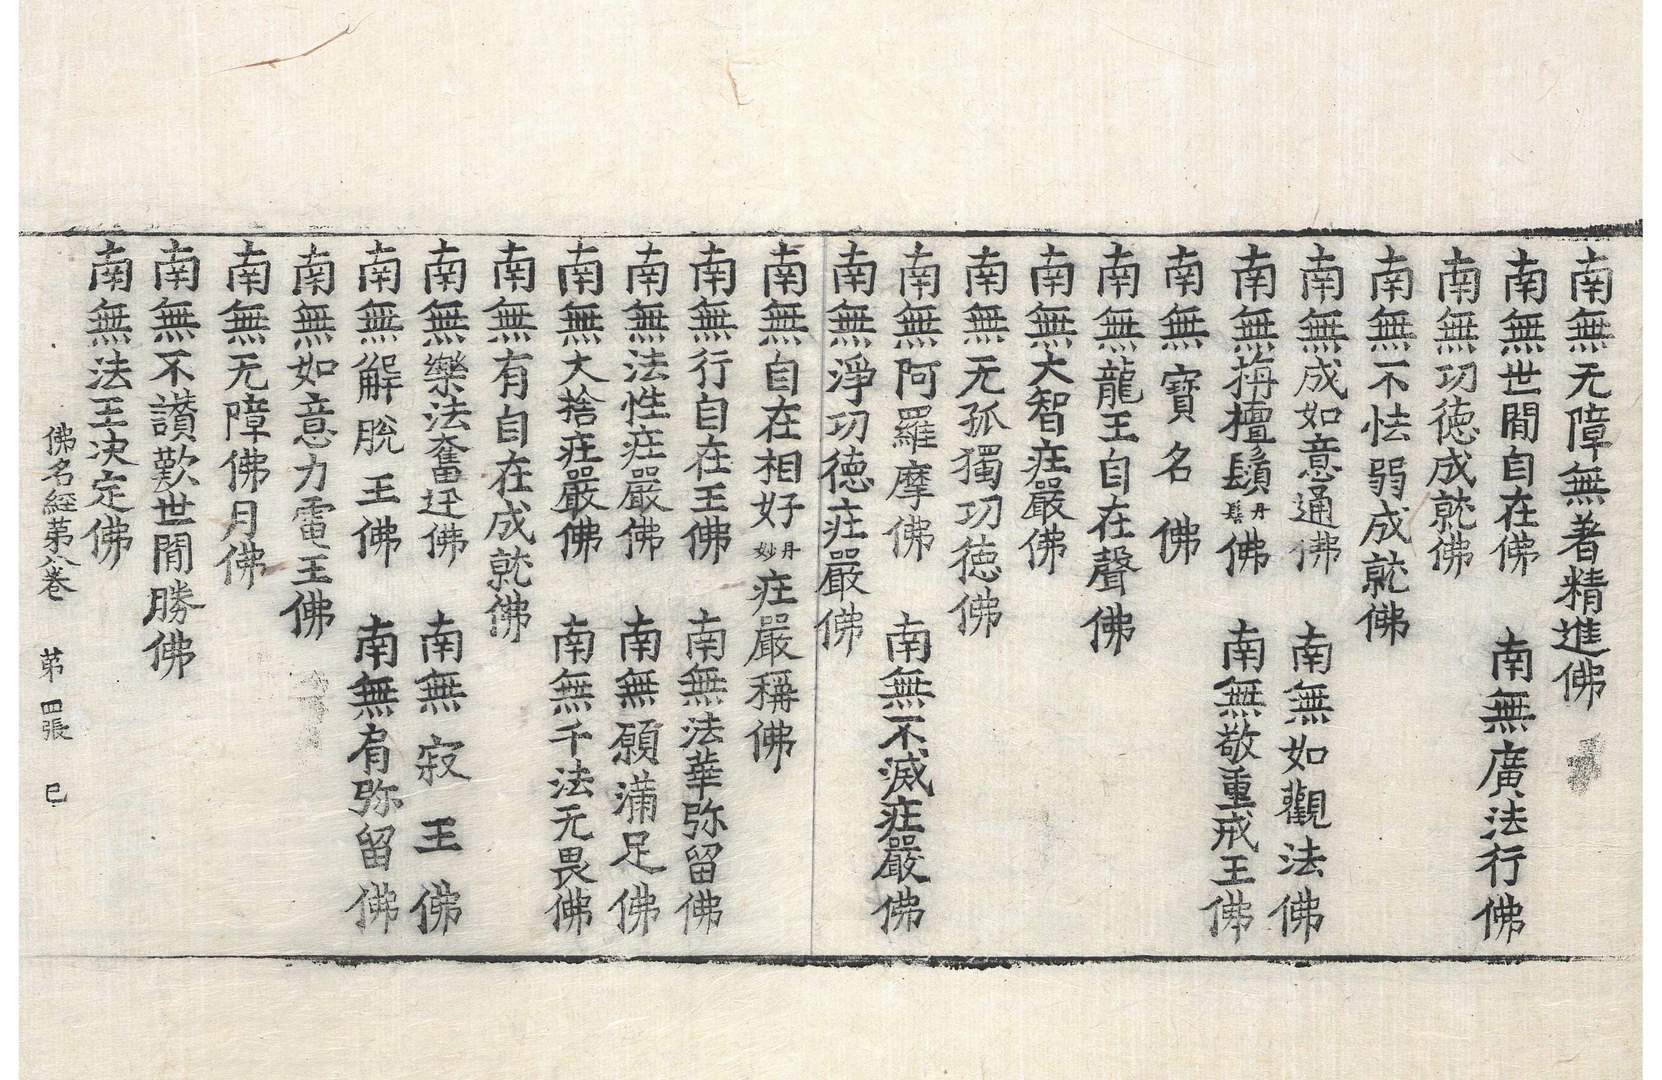 南無无障無著精進佛
南無世閒自在佛　南無廣法行佛
南無㓛徳成就佛
南無不怯弱成就佛
南無成如意通佛　南無如觀法佛
南無栴檀鬚丹鬘佛　南無敬重戒王佛
南無寶名佛
南無龍王自在聲佛
南無大智庄嚴佛
南無无孤獨㓛徳佛
南無阿羅摩佛　南無不減庄嚴佛
南無淨㓛徳庄嚴佛
南無自在相好丹妙庄嚴稱佛
南無行自在王佛　南無法華弥留佛
南無法性庄嚴佛　南無願滿足佛
南無大捨庄嚴佛　南無千法无畏佛
南無有自在成就佛
南無樂法奮迅佛　南無寂王佛
南無解脫王佛　南無肩弥留佛
南無如意力電王佛
南無无障佛月佛
南無不讃歎世閒勝佛
南無法王决定佛
佛名經苐八卷　苐四張　巳